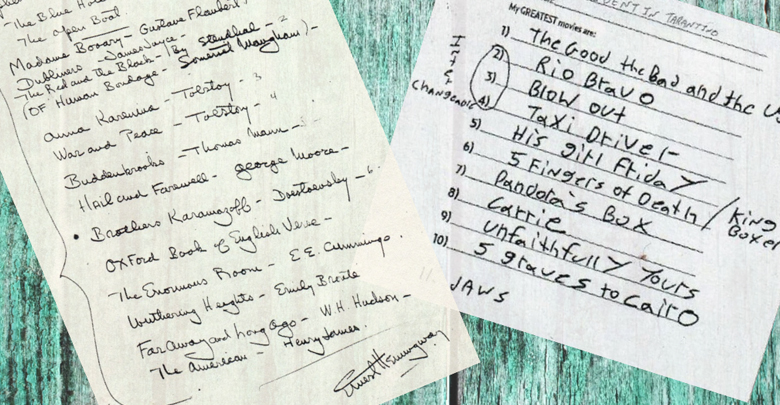 The Blue Ho
The Open Boat
Madame Bovary - Gustave Flaubert
Dubliners - James Joyce -
The Red and the Black - By Stendhal - 2
(OF Human Bondage - Somerset Maugham) -
Anna Karenina - Tolstoy - 3
War and Peace - Tolstoy - 4
Buddenbrooks - Thomas Mann -
Hail and Farewell - George Moore -
Brothers Karamazoff - Doestoevsky - 6
OXFord Book of English Verse -
The Enormous Room - E.E. Cummings.
Wuthering Heights - Emily Bronte
Far Away and Long Ago - W.H. Hudson -
The American - Henry James.
Ernest Hemingway
IN TARANTINO
My GREATEST movies are:
1) The Good the Bad and the
2) Rio Bravo
3) Blow out
4) Taxi Driver
5) His girl Friday
6) 5 Fingers of Death / King Boxer
7) Pandora's Box
8) Carrie
9) unfaithfully yours
10) 5 graves to Cairo
11.
JAWS